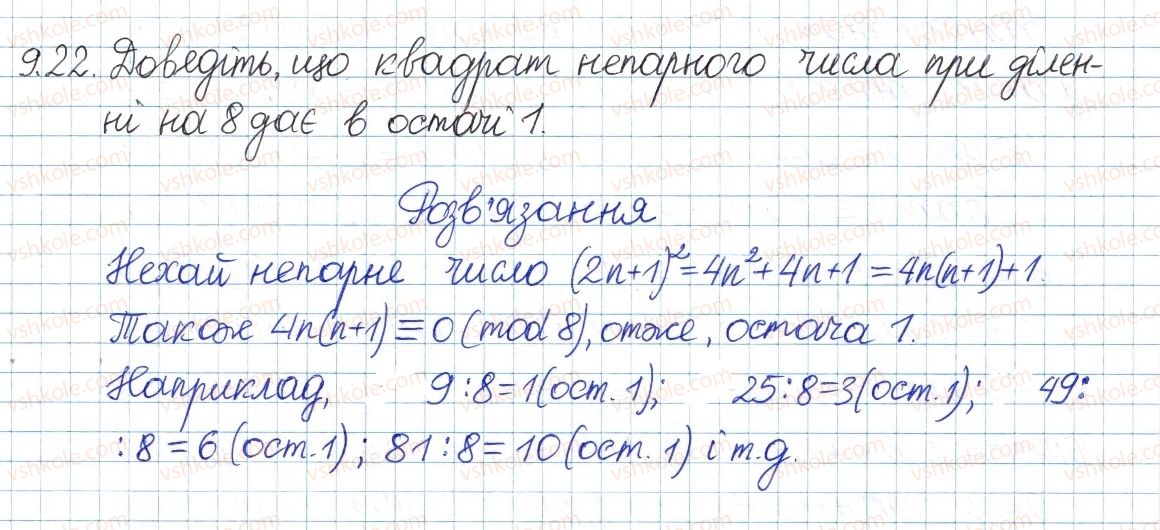 9.22. Доведіть, що квадрат непарного числа при ділен-
ні на 8 дає в остачі 1.
Розв'язання
Нехай непарне число (2n+1)²=4n²+4n+1=4n(n+1)+1.
Також 4n(n+1)≡0(mod 8), отже, остача 1.
Наприклад, 9:8=1(ост.1); 25:8=3(ост.1); 49:
:8=6(ост.1); 81:8=10(ост.1) і т.д.